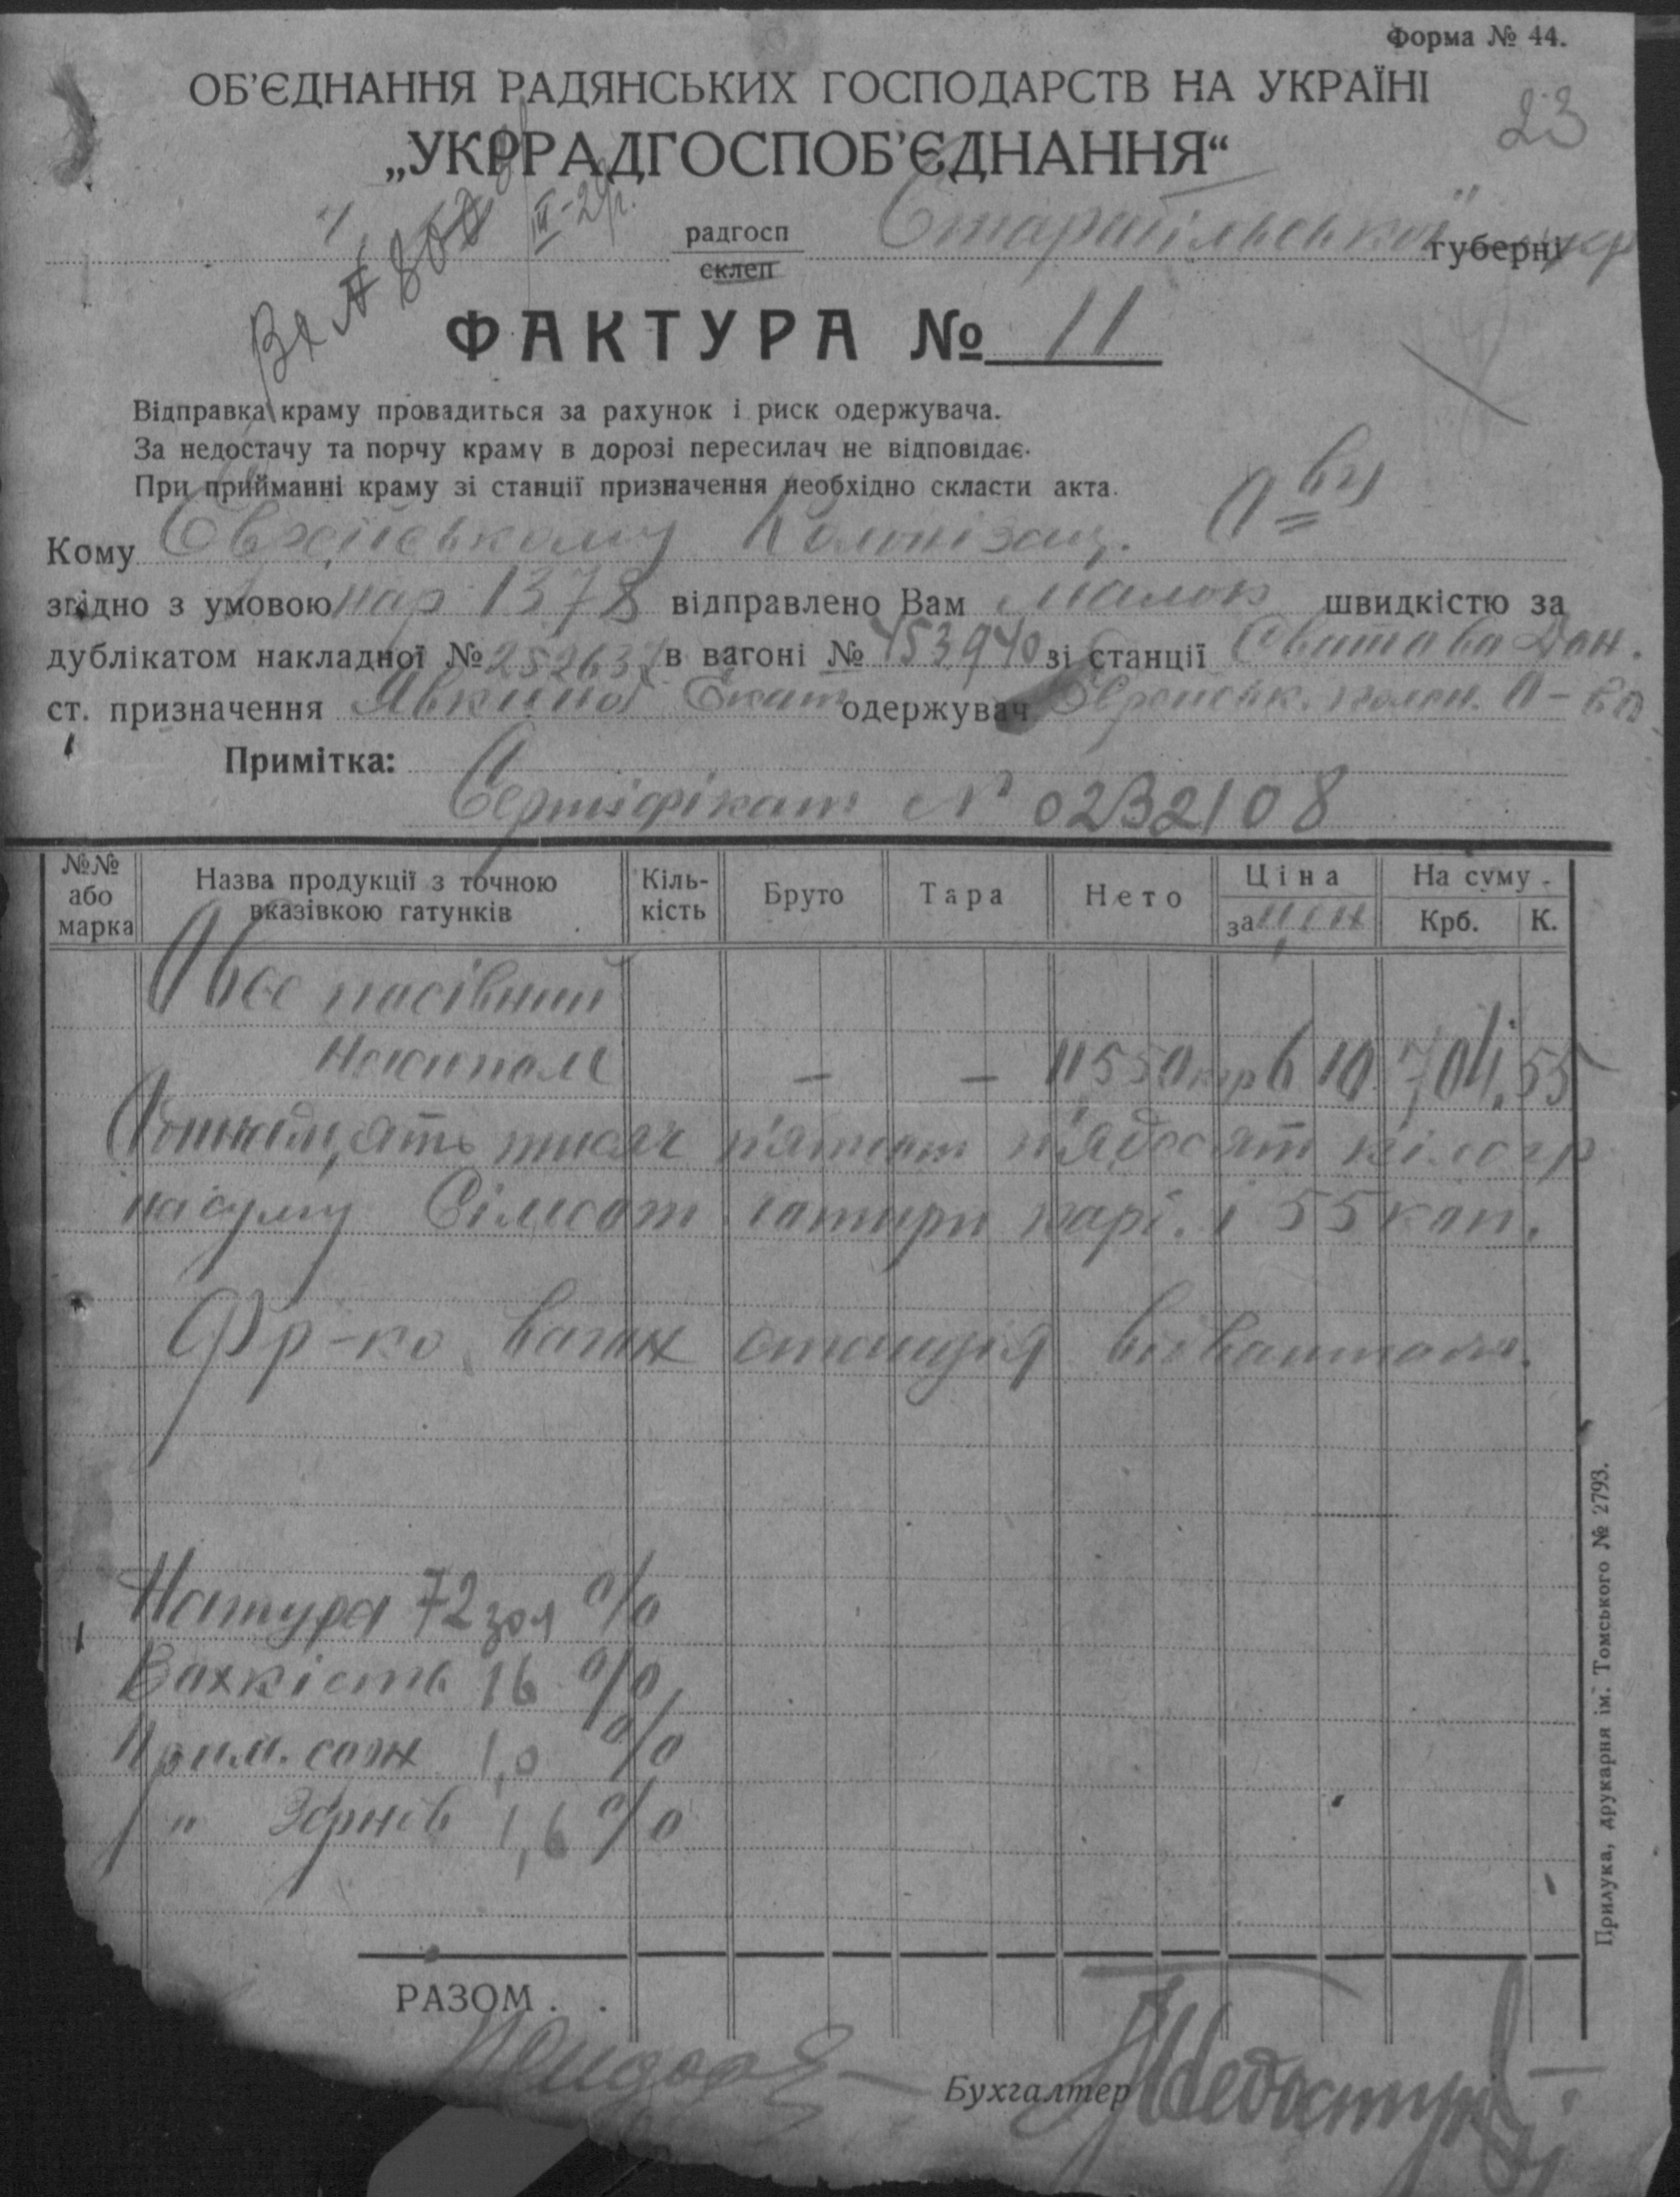 Форма № 44.
23
ОБ'ЄДНАННЯ РАДЯНСЬКИХ ГОСПОДАРСТВ НА УКРАЇНІ
„УКРРАДГОСПОБ'ЄДНАННЯ“
Вх №
радгосп
склеп
Старобільської губерні окр
ФАКТУРА № 11
Відправка краму провадиться за рахунок і риск одержувача.
За недостачу та порчу краму в дорозі пересилач не відповідає.
При прийманні краму зі станції призначення необхідно скласти акта.
Кому Єврейському Колонізац. П-ву
згідно з умовою нар 1378 відправлено Вам малою швидкістю за
дублікатом накладної № 252637 в вагоні № 453940 зі станції Сватова Дон.
ст. призначення Явкино Екат одержувач Єврейськ. колон. П-во
Примітка:
Сертифікат № 0232108
№№ або марка
Назва продукції з точною вказівкою гатунків
Кіль-кість
Бруто
Тара
Нето
Ціна
за цент
На суму
Крб.
К.
Овес посівний
— — 11550 кгр 6 10 704,55
Одинадцять тисяч п'ятсот п'ядесят кілогр
на суму Сімсот чотири карб. і 55 коп.
Фр-ко вагон станція
Натура 72 зол %
Вохкість 16 %
Прим. сотн 1,0 %
" Зернов 1,6 %
РАЗОМ . .
Бухгалтер
Прилука, друкарня ім. Томського № 2793.